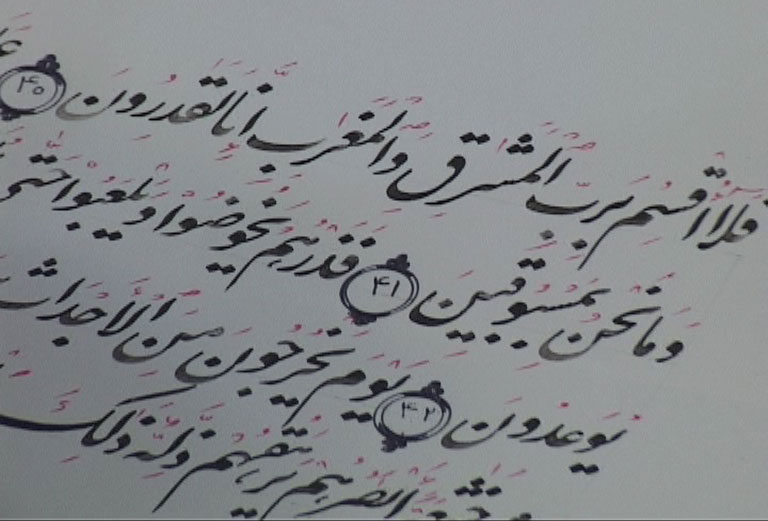 فَلَا اُقْسِمُ بِرَبِّ الْمَشٰرِقِ وَالْمَغٰرِبِ اِنَّا لَقٰدِرُونَ ﴿۴۰﴾
وَمَا نَحْنُ بِمَسْبُوقِينَ ﴿۴۱﴾ فَذَرْهُمْ يَخُوضُوا وَيَلْعَبُوا حَتّٰى
يُوعَدُونَ ﴿۴۲﴾ يَوْمَ يَخْرُجُونَ مِنَ الْاَجْدَاثِ
اَبْصٰرُهُمْ تَرْهَقُهُمْ ذِلَّةٌ ذٰلِكَ